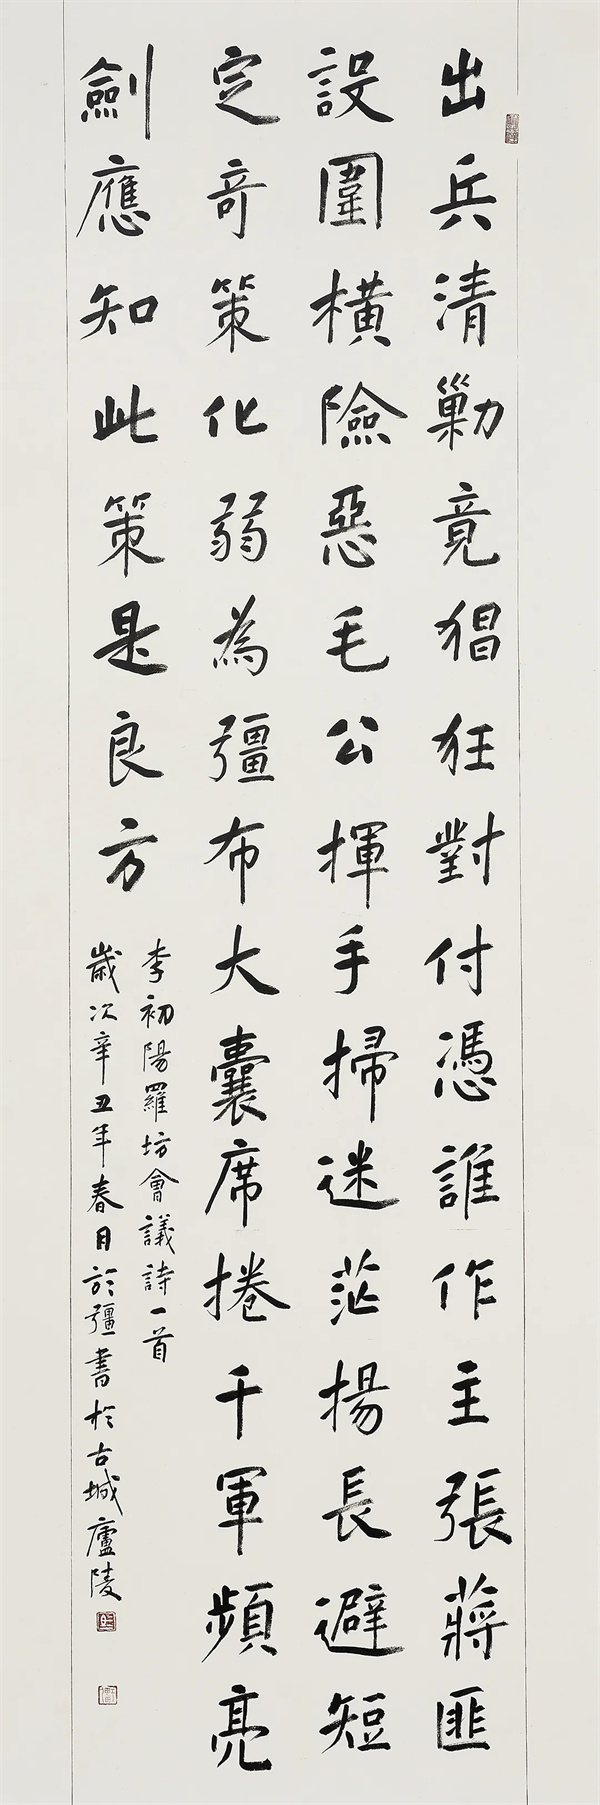 出兵清勦竟猖狂對付憑誰作主張蔣匪
設圍橫險惡毛公揮手掃迷茫揚長避短
定奇策化弱為彊布大囊席捲千軍頻亮
劍應知此策是良方
李初陽羅坊會議詩一首
歲次辛丑年春月於彊書於古城廬陵